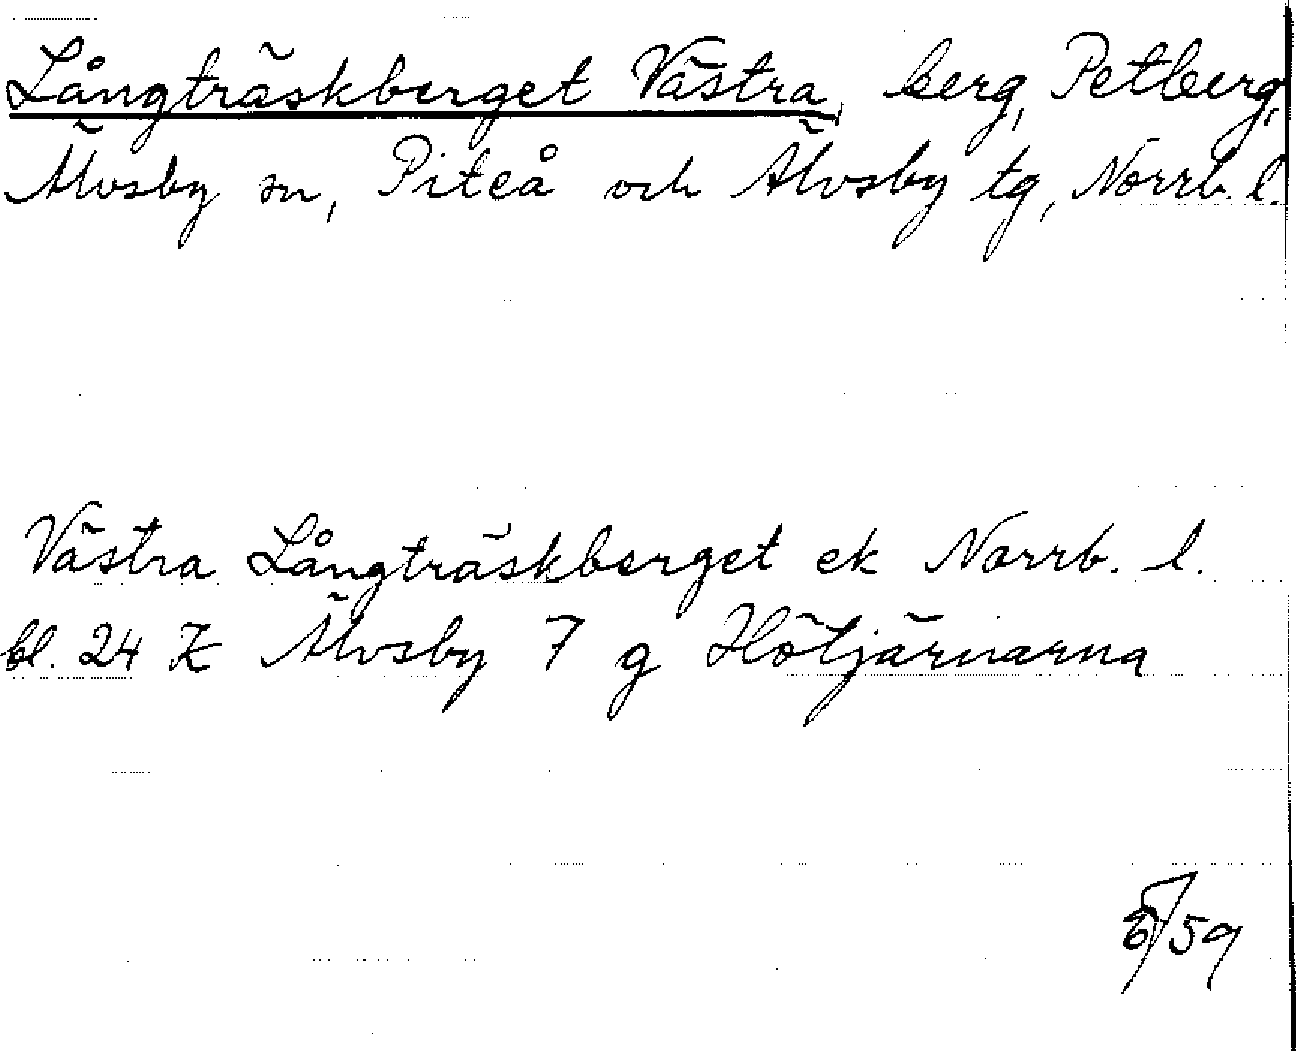 Långträskberget Västra, berg, Petberg,
Älvsby sn, Piteå och Älvsby tg, Norrb. l.
Västra Långträskberget ek Norrb. l.
bl. 24 K Älvsby 7 g Hötjärnarna